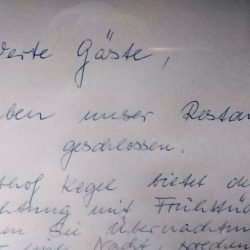 werte Gäste,
ben unser Resta
geschlossen.
thof Kegel bietet de
htung mit Frühstü
en Sie Übernachtun